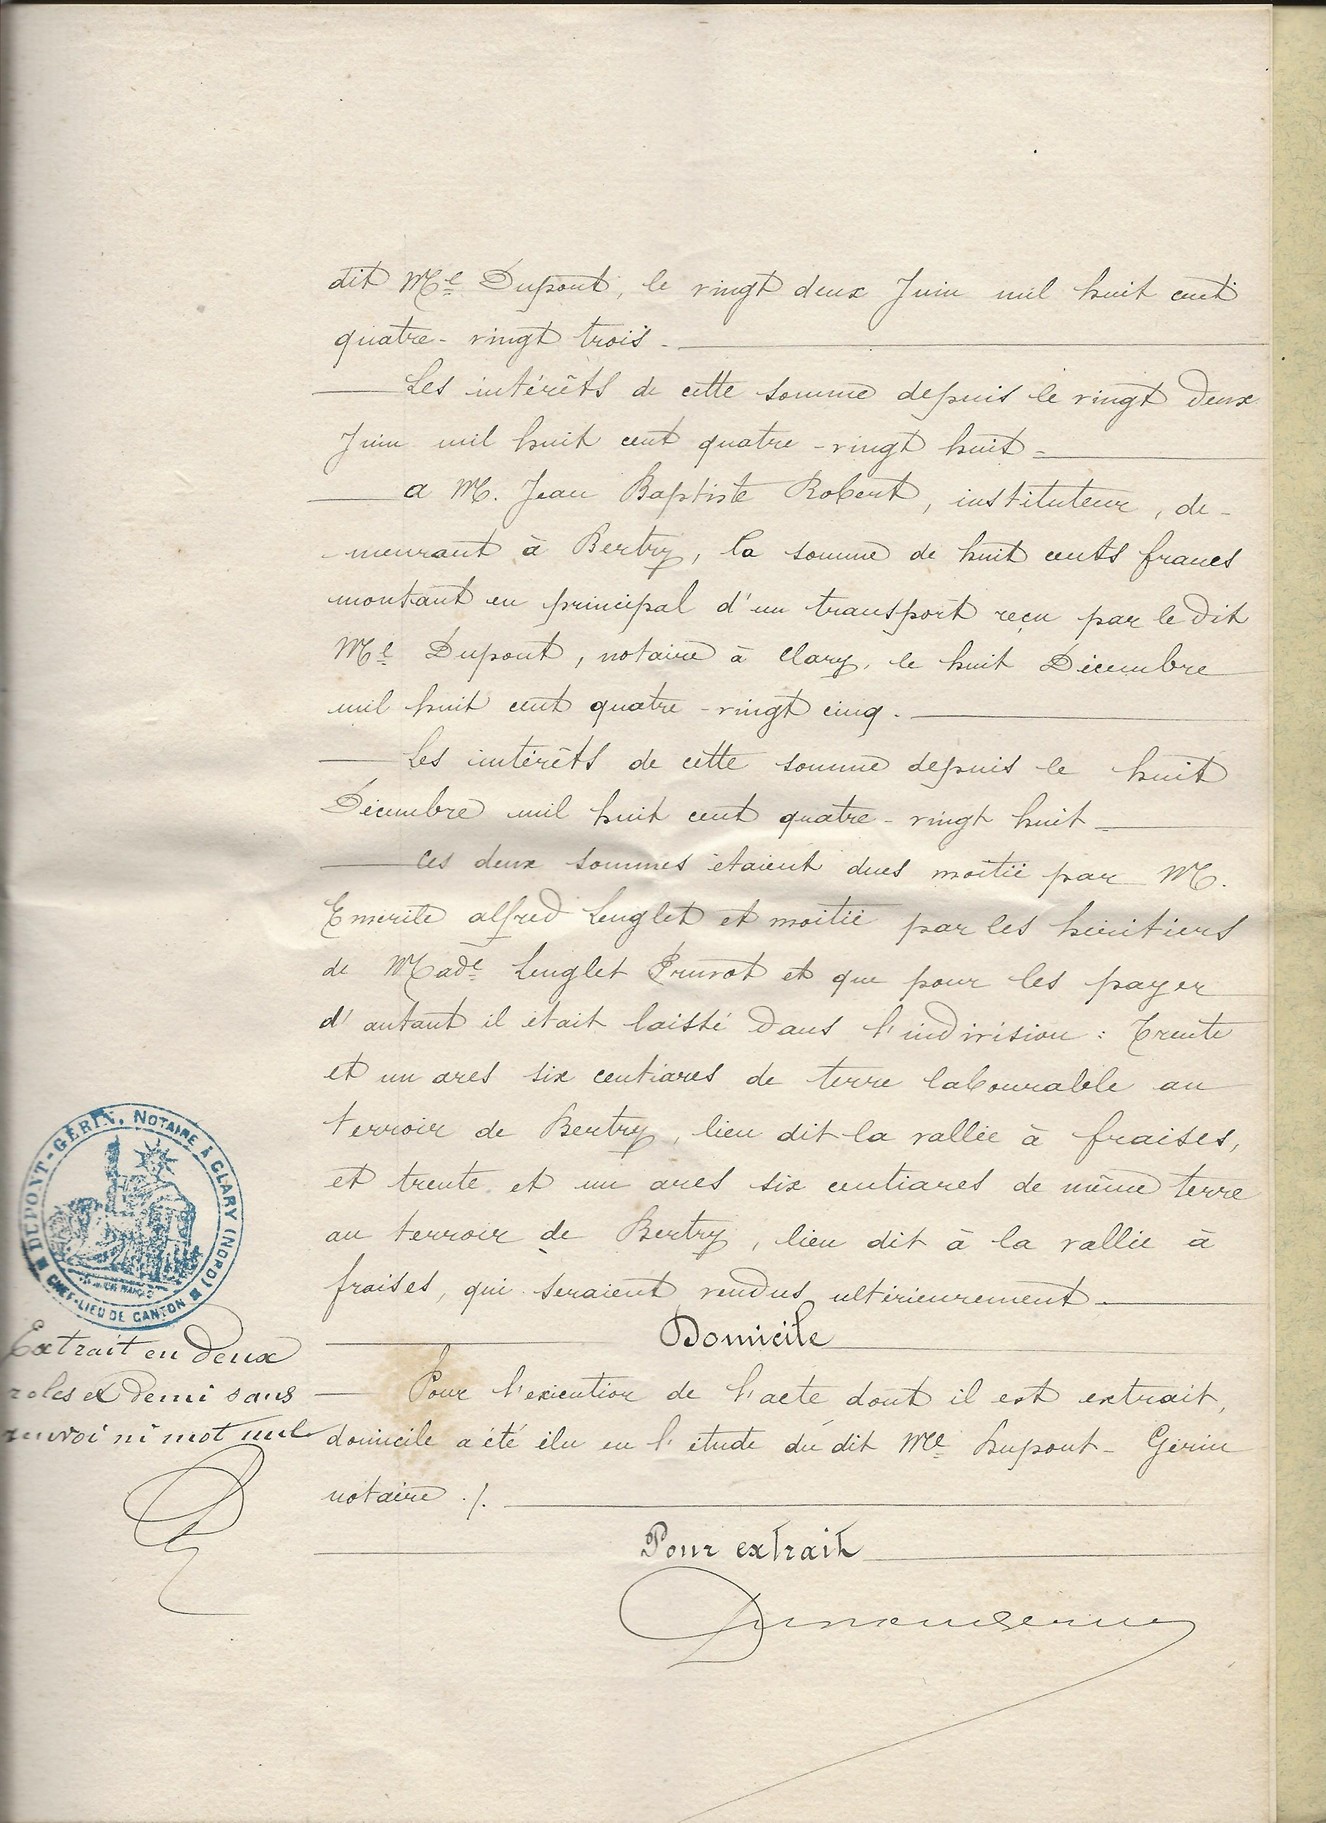 dit Me Dupont, le vingt deux Juin mil huit cent
quatre-vingt trois.
Les intérêts de cette somme depuis le vingt deux
Juin mil huit cent quatre-vingt huit.
a M. Jean Baptiste Robert, instituteur, de-
meurant à Bertry, la somme de huit cents francs
montant en principal d'un transport reçu par le dit
Me Dupont, notaire à Clary, le huit Décembre
mil huit cent quatre-vingt cinq.
Les intérêts de cette somme depuis le huit
Décembre mil huit cent quatre-vingt huit
Ces deux sommes étaient dues moitié par M.
Emerile alfred Lenglet et moitié par les héritiers
de Made Lenglet Pruvot et que pour les payer
d'autant il était laissé dans l'indivision : Trente
et un ares six centiares de terre labourable au
terroir de Bertry, lieu dit la vallée à fraises,
et trente et un ares six centiares de même terre
au terroir de Bertry, lieu dit à la vallée à
fraises, qui seraient vendus ultérieurement
Domicile
Pour l'exécution de l'acte dont il est extrait,
domicile a été élu en l'étude du dit Me Dupont-Gérin
notaire ./.
Pour extrait
DUPONT-GÉRIN, NOTAIRE À CLARY (NORD)
CHEF-LIEU DE CANTON
Extrait en deux
roles et demi sans
renvoi ni mot nul